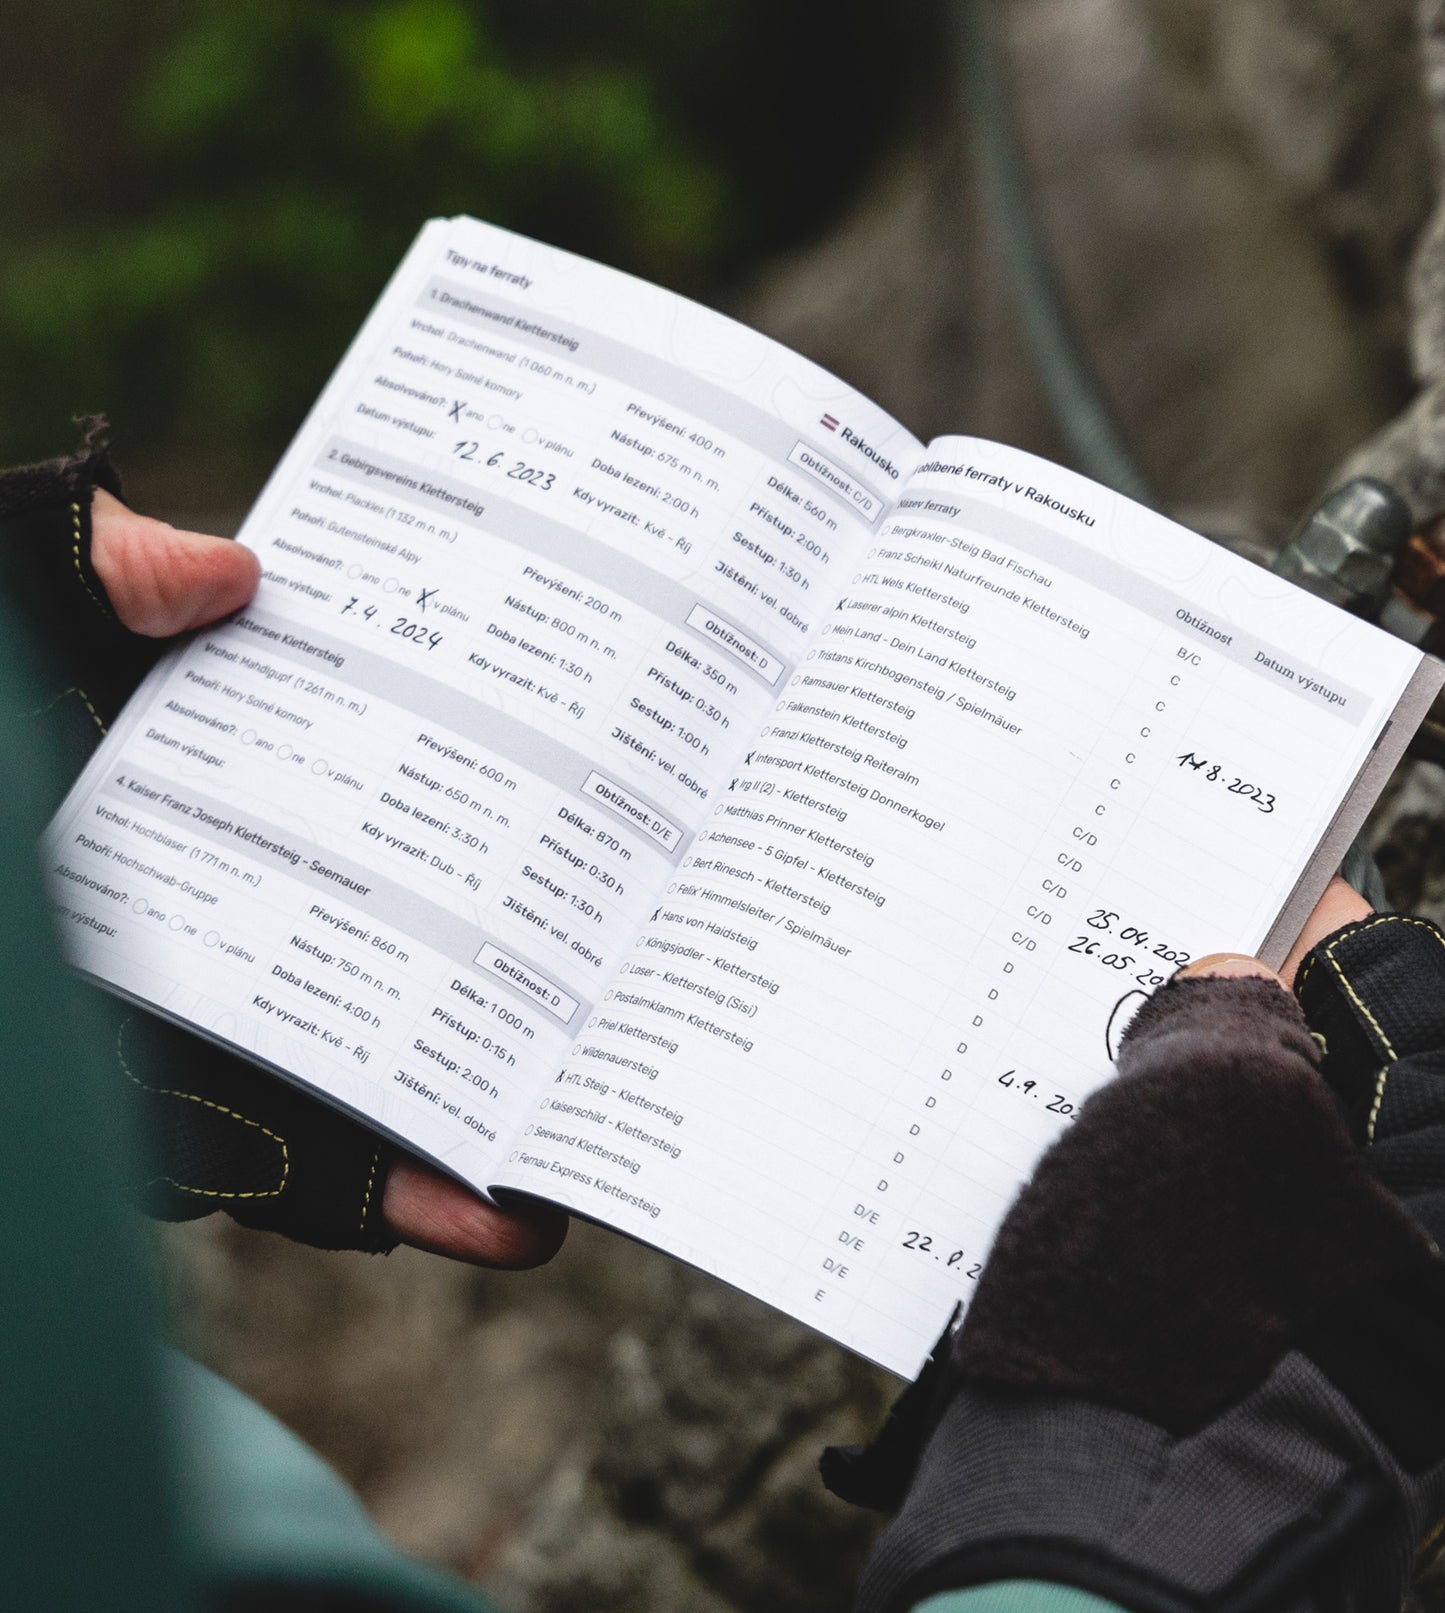 Tipy na ferraty
Rakousko
1. Drachenwand Klettersteig
Obtížnost: C/D
Vrchol: Drachenwand (1 060 m n. m.) Převýšení: 400 m Délka: 560 m
Pohoří: Hory Solné komory Nástup: 675 m n. m. Přístup: 2:00 h
Absolvováno?: X ano ne v plánu Doba lezení: 2:00 h Sestup: 1:30 h
Datum výstupu: 12. 6. 2023 Kdy vyrazit: Kvě - Říj Jištění: vel. dobré
2. Gebirgsvereins Klettersteig
Obtížnost: D
Vrchol: Plackles (1 132 m n. m.) Převýšení: 200 m Délka: 350 m
Pohoří: Gutensteinské Alpy Nástup: 800 m n. m. Přístup: 0:30 h
Absolvováno?: ano ne X v plánu Doba lezení: 1:30 h Sestup: 1:00 h
atum výstupu: 7. 4. 2024 Kdy vyrazit: Kvě - Říj Jištění: vel. dobré
Attersee Klettersteig
Obtížnost: D/E
Vrchol: Mahdlgupf (1 261 m n. m.) Převýšení: 600 m Délka: 870 m
Pohoří: Hory Solné komory Nástup: 650 m n. m. Přístup: 0:30 h
Absolvováno?: ano ne v plánu Doba lezení: 3:30 h Sestup: 1:30 h
Datum výstupu: Kdy vyrazit: Dub - Říj Jištění: vel. dobré
4. Kaiser Franz Joseph Klettersteig - Seemauer
Obtížnost: D
Vrchol: Hochblaser (1 771 m n. m.) Převýšení: 860 m Délka: 1 000 m
Pohoří: Hochschwab-Gruppe Nástup: 750 m n. m. Přístup: 0:15 h
Absolvováno?: ano ne v plánu Doba lezení: 4:00 h Sestup: 2:00 h
výstupu: Kdy vyrazit: Kvě - Říj Jištění: vel. dobré
oblíbené ferraty v Rakousku
Název ferraty Obtížnost Datum výstupu
Bergkraxler-Steig Bad Fischau B/C
Franz Scheikl Naturfreunde Klettersteig C
HTL Wels Klettersteig C
X Laserer alpin Klettersteig C 8. 2023
Mein Land - Dein Land Klettersteig C
Tristans Kirchbogensteig / Spielmäuer C
Ramsauer Klettersteig C
Falkenstein Klettersteig C/D
Franzi Klettersteig Reiteralm C/D
X Intersport Klettersteig Donnerkogel C/D 25. 04. 202
X Irg II (2) - Klettersteig C/D 26. 05. 20
Matthias Prinner Klettersteig C/D
Achensee - 5 Gipfel - Klettersteig D
Bert Rinesch - Klettersteig D
Felix' Himmelsleiter / Spielmäuer D
X Hans von Haidsteig D 4. 9. 202
Königsjodler - Klettersteig D
Loser - Klettersteig (Sisi) D
Postalmklamm Klettersteig D
Priel Klettersteig D
Wildenauersteig D
X HTL Steig - Klettersteig D/E 22. 8. 2
Kaiserschild - Klettersteig D/E
Seewand Klettersteig D/E
Fernau Express Klettersteig E